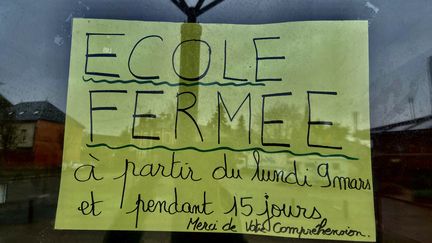 ECOLE
FERMEE
à partir du lundi 9 mars
et pendant 15 jours
Merci de Votre Compréhension.